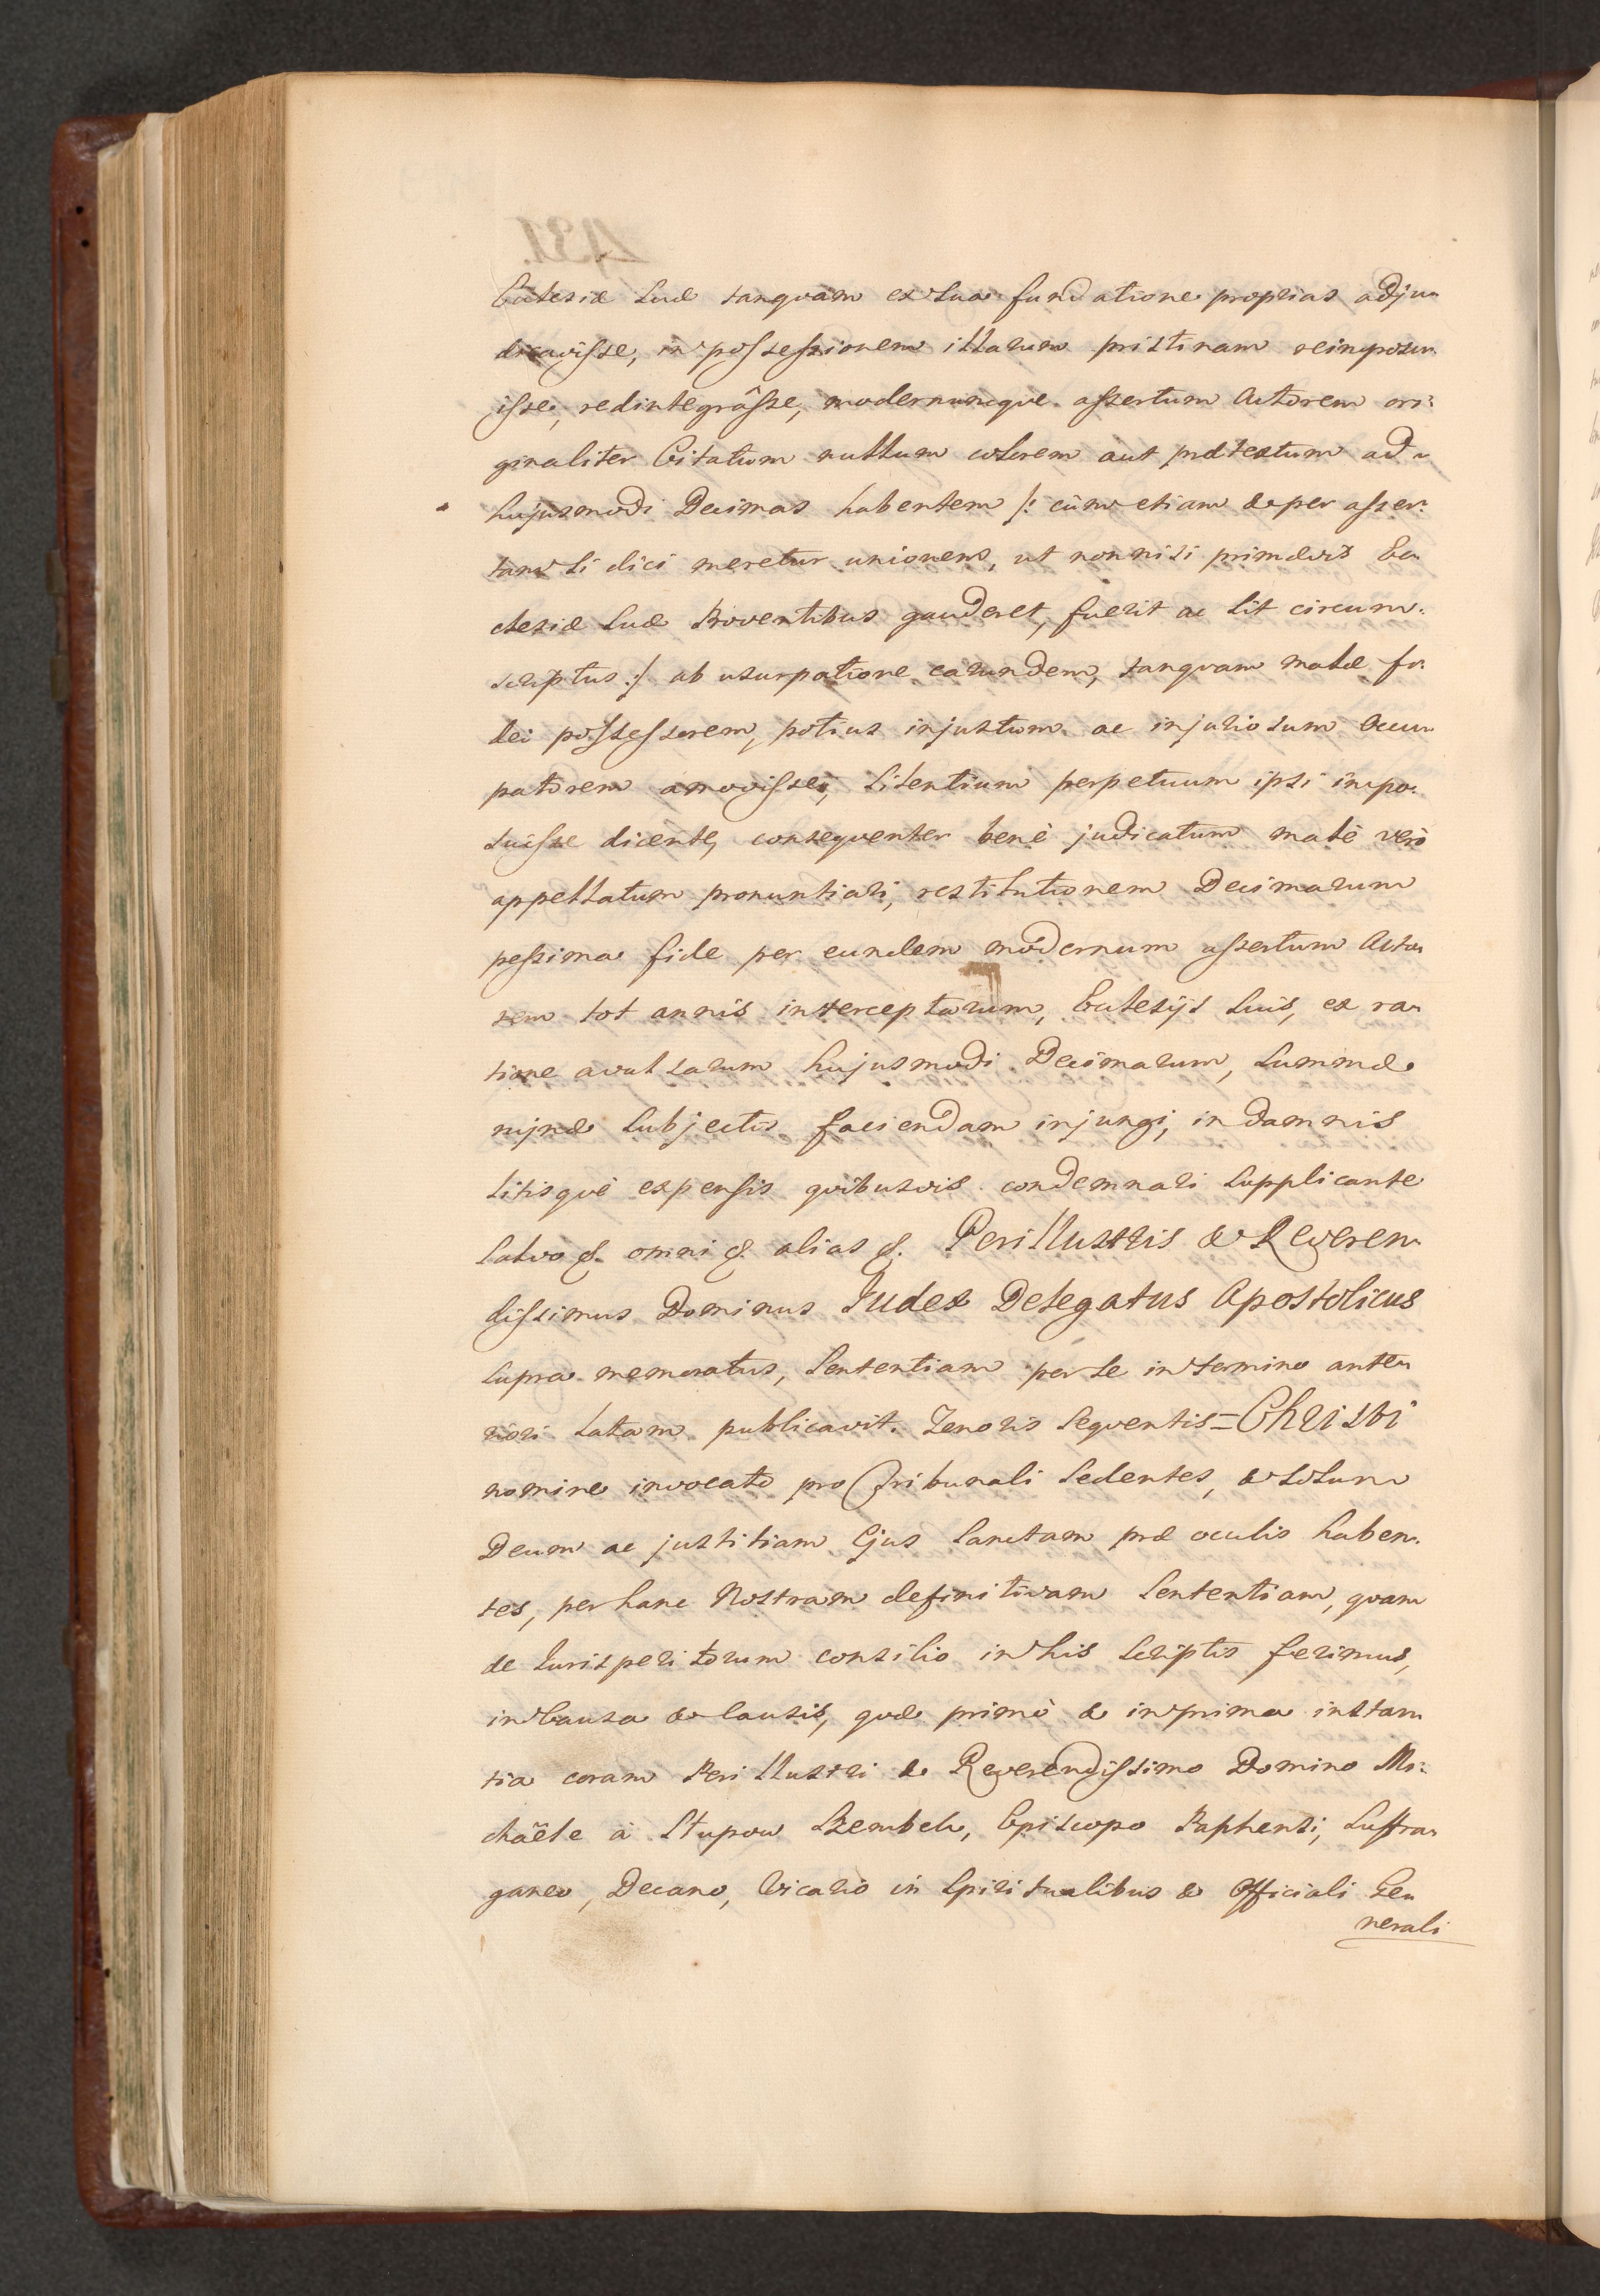 Ecclesiæ suæ tanquam ex sua fundatione proprias adju-
dicavisse, in possessionem illarum pristinam reimposu-
isse, redintegrâsse, modernumque assertum Actorem ori-
ginaliter Citatum nullum colorem aut prætextum ad
hujusmodi Decimas habentem /: cùm etiam & per asser-
tam si dici meretur unionem, ut non nisi primævis Ec-
clesiæ suæ Proventibus gauderet, fuerit ac sit circum-
scriptus :/ ab usurpatione earundem, tanquam malæ fi-
dei possessorem, potius injustum ac injuriosum Occu-
patorem amovisse, silentium perpetuum ipsi impo-
suisse dicente, consequenter benè judicatum malè verò
appellatum pronuntiari, restitutionem Decimarum
pessima fide per eundem modernum assertum Acto-
rem tot annis interceptarum, Ecclesijs suis, ex ra-
tione avulsarum hujusmodi Decimarum, summæ
rujnæ subjectis faciendam injungi, in damnis
litisquè expensis quibusvis condemnari supplicante
salvo &. omni &. alias &. Perillustris & Reveren-
dissimus Dominus Iudex Delegatus Apostolicus
supra memoratus, sententiam per se in termino ante-
riori latam publicavit. Tenoris sequentis = Christi
nomine invocato pro Tribunali sedentes, & solum
Deum ac justitiam Ejus sanctam præ oculis haben-
tes, per hanc Nostram definitivam sententiam, quam
de Iurisperitorum consilio in his scriptis ferimus,
in Causa & causis, quæ primò & in prima instan-
tia coram Perillustri & Reverendissimo Domino Mi-
chaële à Słupow Szembek, Episcopo Paphensi, Suffra-
ganeo, Decano, Vicario in Spiritualibus & Officiali Ge-
nerali